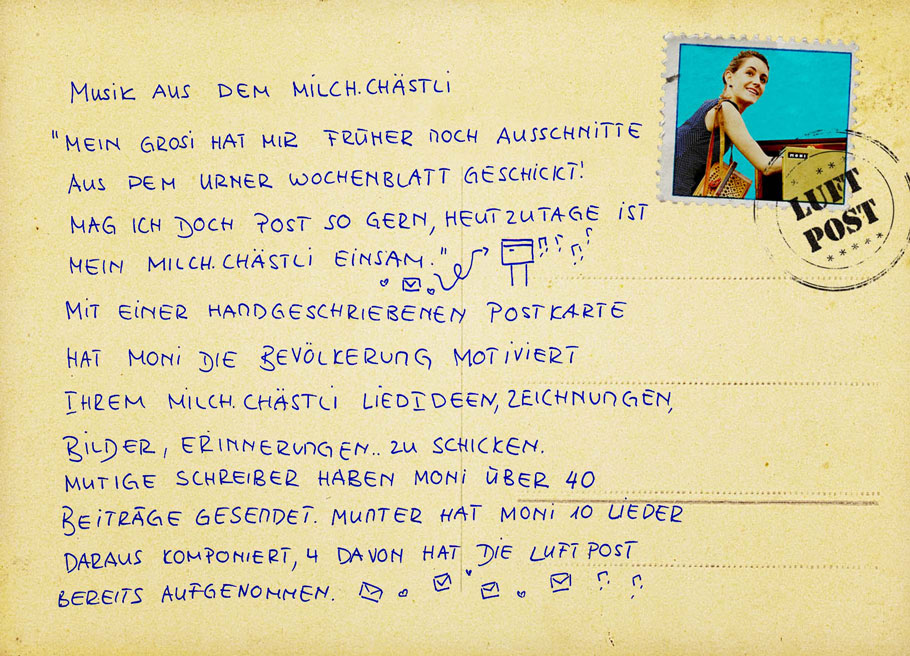 Musik aus dem Milch.Chästli
"Mein Grosi hat mir früher noch Ausschnitte
aus dem Urner Wochenblatt geschickt!
Mag ich doch Post so gern, heutzutage ist
mein Milch.Chästli einsam."
Mit einer handgeschriebenen Postkarte
hat Moni die Bevölkerung motiviert
Ihrem Milch.Chästli Liedideen, Zeichnungen,
Bilder, Erinnerungen.. zu schicken.
Mutige Schreiber haben Moni über 40
Beiträge gesendet. Munter hat Moni 10 Lieder
daraus komponiert, 4 davon hat die Luftpost
bereits aufgenommen.
MONI
LUFT
POST